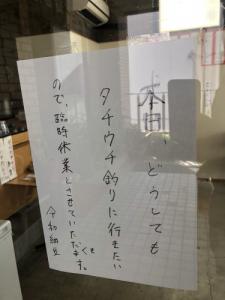 本日、どうしても
タチウチ釣りに行きたい
ので、臨時休業とさせていただきます。